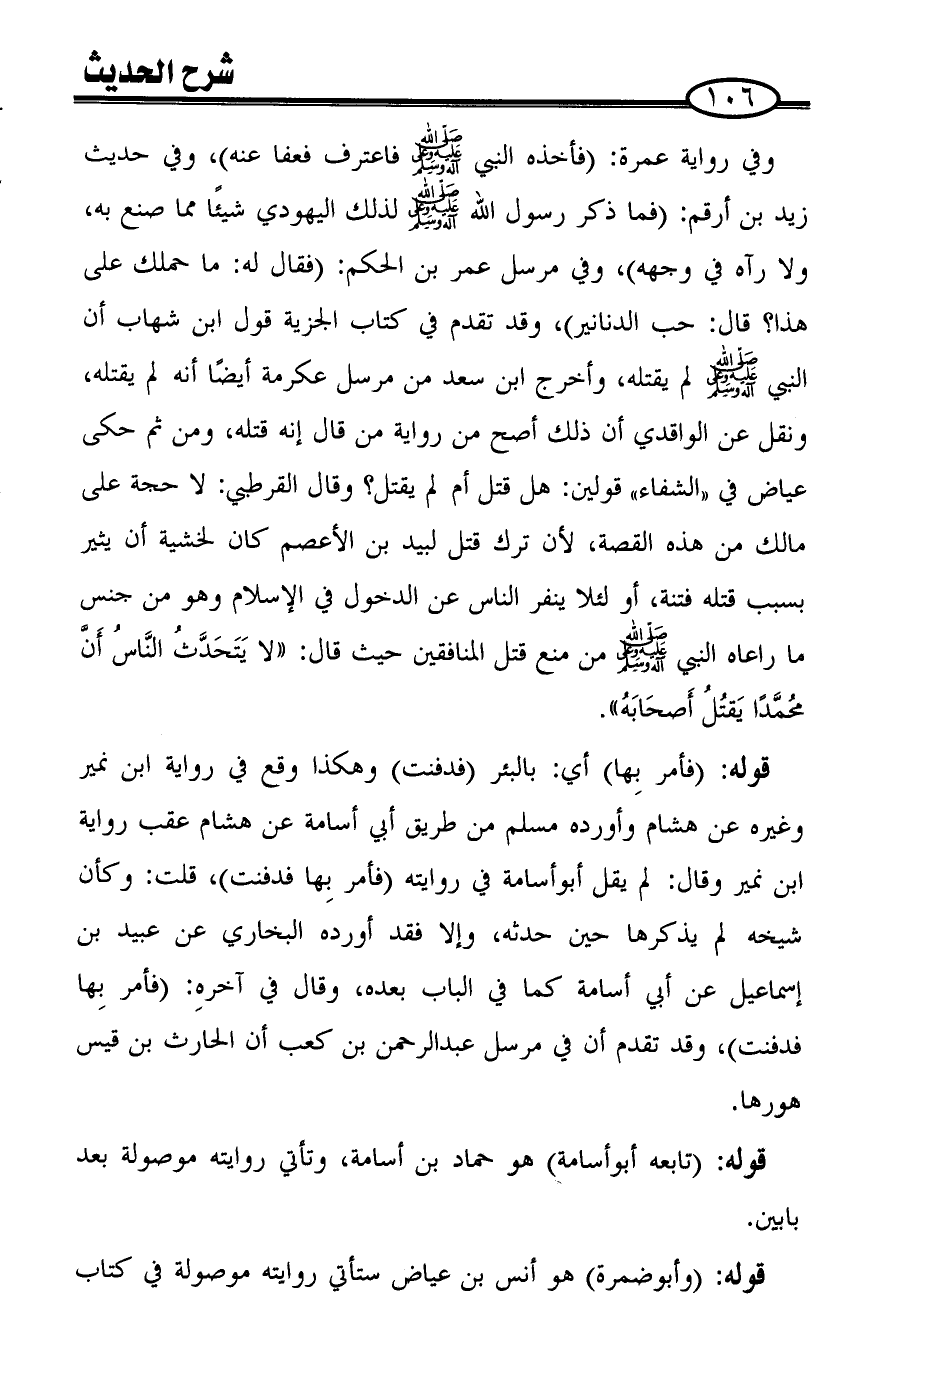 شرح الحديث
١٠٦
وفي رواية عمرة: (فأخذه النبي ﷺ فاعترف فعفا عنه)، وفي حديث
زيد بن أرقم: (فما ذكر رسول الله ﷺ لذلك اليهودي شيئًا مما صنع به،
ولا رآه في وجهه)، وفي مرسل عمر بن الحكم: (فقال له: ما حملك على
هذا؟ قال: حب الدنانير)، وقد تقدم في كتاب الجزية قول ابن شهاب أن
النبي ﷺ لم يقتله، وأخرج ابن سعد من مرسل عكرمة أيضًا أنه لم يقتله،
ونقل عن الواقدي أن ذلك أصح من رواية من قال إنه قتله، ومن ثم حكى
عياض في «الشفاء» قولين: هل قتل أم لم يقتل؟ وقال القرطبي: لا حجة على
مالك من هذه القصة، لأن ترك قتل لبيد بن الأعصم كان لخشية أن يثير
بسبب قتله فتنة، أو لئلا ينفر الناس عن الدخول في الإسلام وهو من جنس
ما راعاه النبي ﷺ من منع قتل المنافقين حيث قال: «لا يَتَحَدَّثُ النَّاسُ أَنَّ
مُحَمَّدًا يَقتُلُ أَصحَابَهُ».
قوله: (فأمر بِها) أي: بالبئر (فدفنت) وهكذا وقع في رواية ابن نمير
وغيره عن هشام وأورده مسلم من طريق أبي أسامة عن هشام عقب رواية
ابن نمير وقال: لم يقل أبوأسامة في روايته (فأمر بِها فدفنت)، قلت: وكأن
شيخه لم يذكرها حين حدثه، وإلا فقد أورده البخاري عن عبيد بن
إسماعيل عن أبي أسامة كما في الباب بعده، وقال في آخرهِ: (فأمر بِها
فدفنت)، وقد تقدم أن في مرسل عبدالرحمن بن كعب أن الحارث بن قيس
هورها.
قوله: (تابعه أبوأسامة) هو حماد بن أسامة، وتأتي روايته موصولة بعد
بابين.
قوله: (وأبوضمرة) هو أنس بن عياض ستأتي روايته موصولة في كتاب